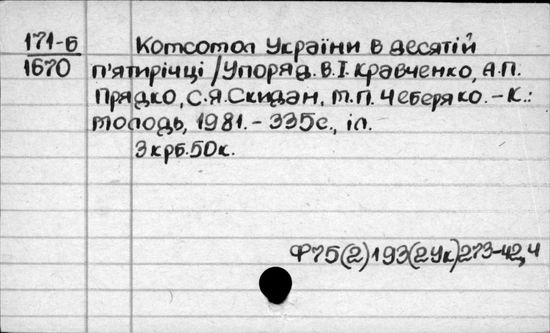 171-Б
1670
Комсомол України в десятій
п'ятирічці / Упоряд. В.І. Кравченко, А.П.
Прядко, С.Я. Скидан, М.П. Чеберяко. – К.:
Молодь, 1981. – 335с., іл.
3 крб. 50к.
Ф75(2)193(2Ук)273-42,4